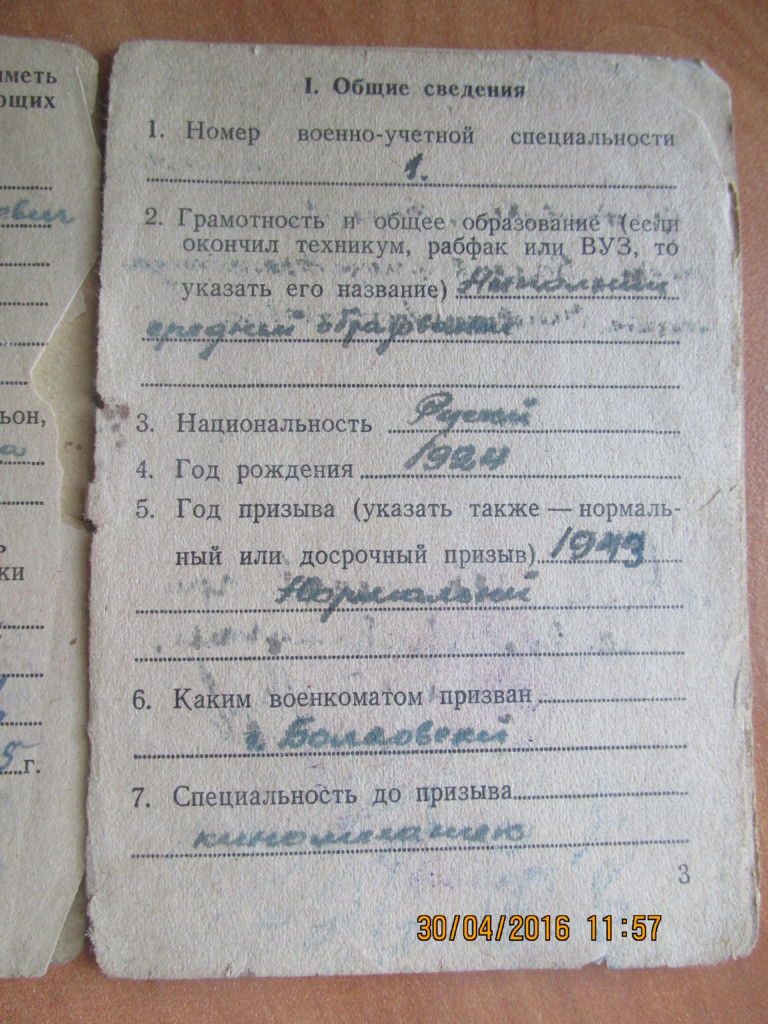 иметь
ющих
евич
ьон,
а
ь
ки
5 г.
I. Общие сведения
1. Номер военно-учетной специальности
1.
2. Грамотность и общее образование (если
окончил техникум, рабфак или ВУЗ, то
указать его название)
средний образование
3. Национальность Руский
4. Год рождения 1924
5. Год призыва (указать также — нормаль-
ный или досрочный призыв) 1943
Нормальный
6. Каким военкоматом призван
г. Болховский
7. Специальность до призыва
киномеханик
3
30/04/2016 11:57